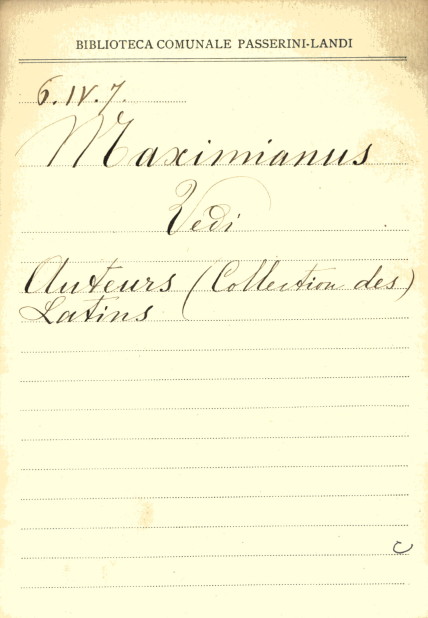 BIBLIOTECA COMUNALE PASSERINI-LANDI
6.IV.7.
Maximianus
Vedi
Auteurs (Collection des)
Latins
C